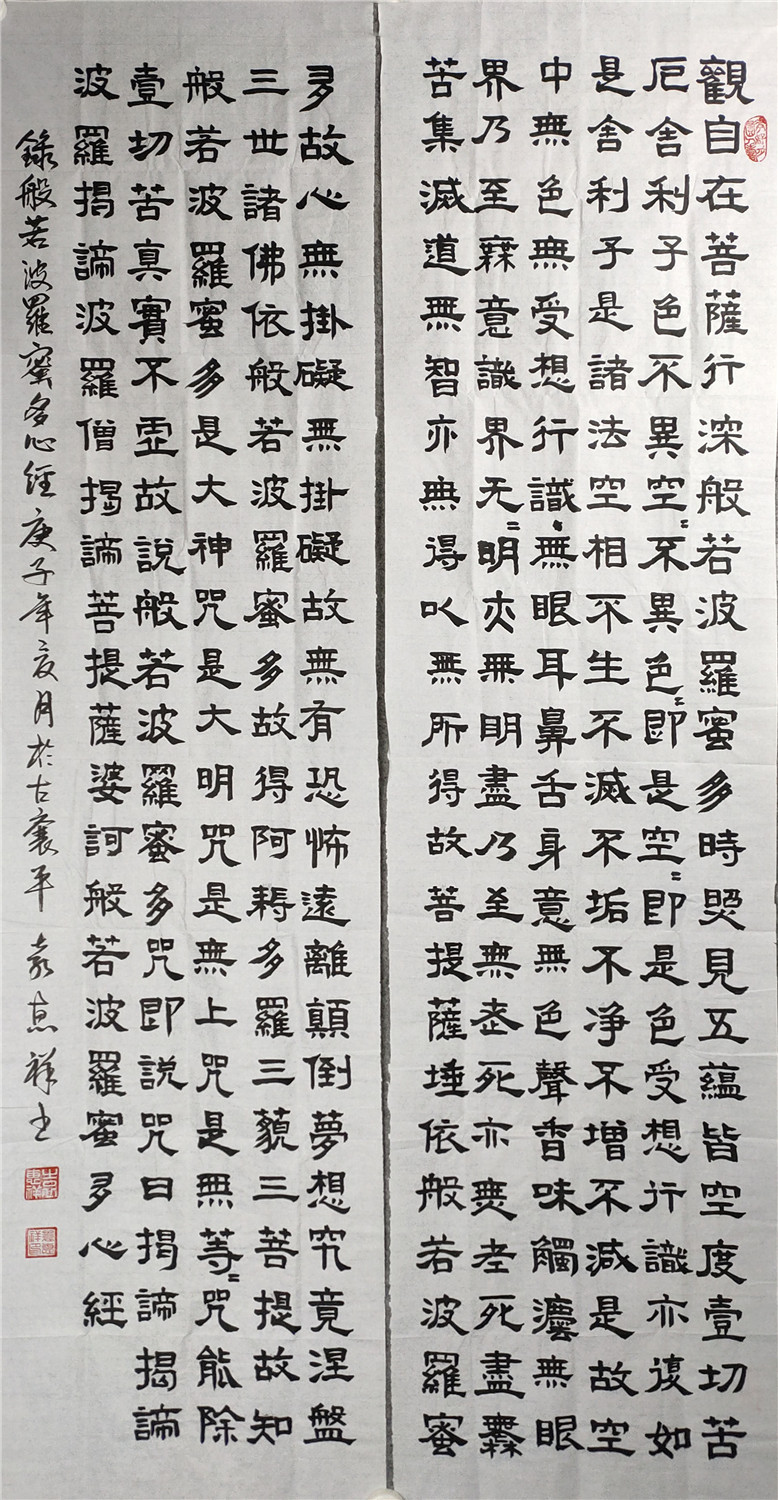 觀自在菩薩行深般若波羅蜜多時照見五蘊皆空度壹切苦
厄舍利子色不異空〻不異色〻即是空〻即是色受想行識亦復如
是舍利子是諸法空相不生不滅不垢不净不增不減是故空
中無色無受想行識無眼耳鼻舌身意無色聲香味觸灋無眼
界乃至無意識界无〻明亦無明盡乃至無老死亦無老死盡無
苦集滅道無智亦無得以無所得故菩提薩埵依般若波羅蜜
多故心無掛礙無掛礙故無有恐怖遠離顛倒夢想究竟涅盤
三世諸佛依般若波羅蜜多故得阿耨多羅三藐三菩提故知
般若波羅蜜多是大神咒是大明咒是無上咒是無等〻咒能除
壹切苦真實不虛故說般若波羅蜜多咒即說咒曰揭諦揭諦
波羅揭諦波羅僧揭諦菩提薩婆訶般若波羅蜜多心經
錄般若波羅蜜多心經庚子年亥月於古襄平袁惠祥書